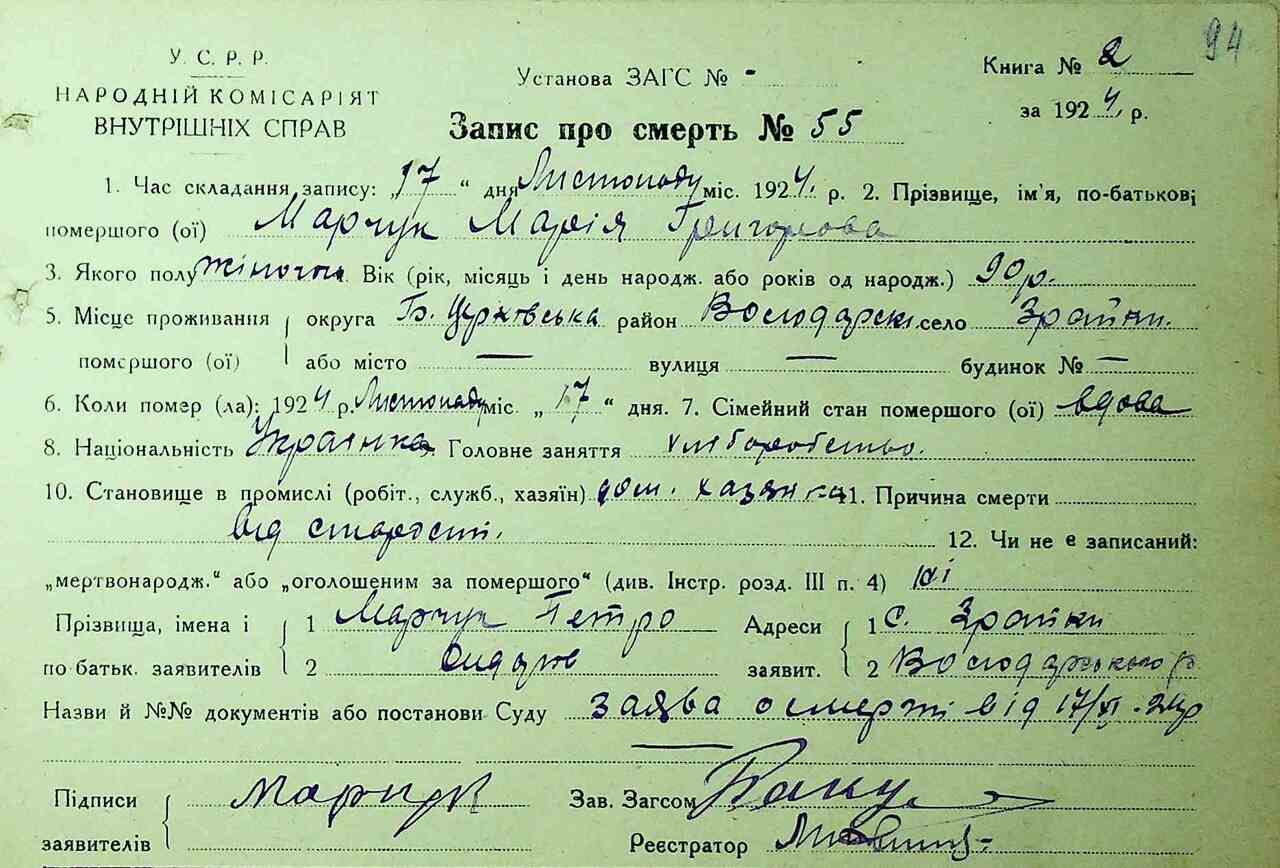 94
У. С. Р. Р.
НАРОДНІЙ КОМІСАРІЯТ
ВНУТРІШНІХ СПРАВ
Установа ЗАГС № -
Книга № 2
за 1924 р.
Запис про смерть № 55
1. Час складання запису: „17“ дня Листопаду міс. 1924 р. 2. Прізвище, ім'я, по-батькові
помершого (ої) Марчук Марія Григорова
3. Якого полу жіночого Вік (рік, місяць і день народж. або років од народж.) 90 р.
5. Місце проживання округа Б. Церковська район Володарськ. село Зрайки.
помершого (ої) або місто — вулиця — будинок № —
6. Коли помер (ла): 1924 р. Листопаду міс. „17“ дня. 7. Сімейний стан помершого (ої) вдова
8. Національність Українка 9. Головне заняття хліборобство.
10. Становище в промислі (робіт., служб., хазяїн) дом. хазяйка 11. Причина смерти
від старости.
12. Чи не є записаний:
„мертвонародж.“ або „оголошеним за помершого“ (див. Інстр. розд. III п. 4) ні
Прізвища, імена і 1 Марчук Петро Адреси 1 С. Зрайки
по батьк. заявителів 2 заявит. 2 Володарського р
Назви й №№ документів або постанови Суду заява о смерті від 17/XI-24р
Підписи Марчук Зав. Загсом
заявителів Реєстратор